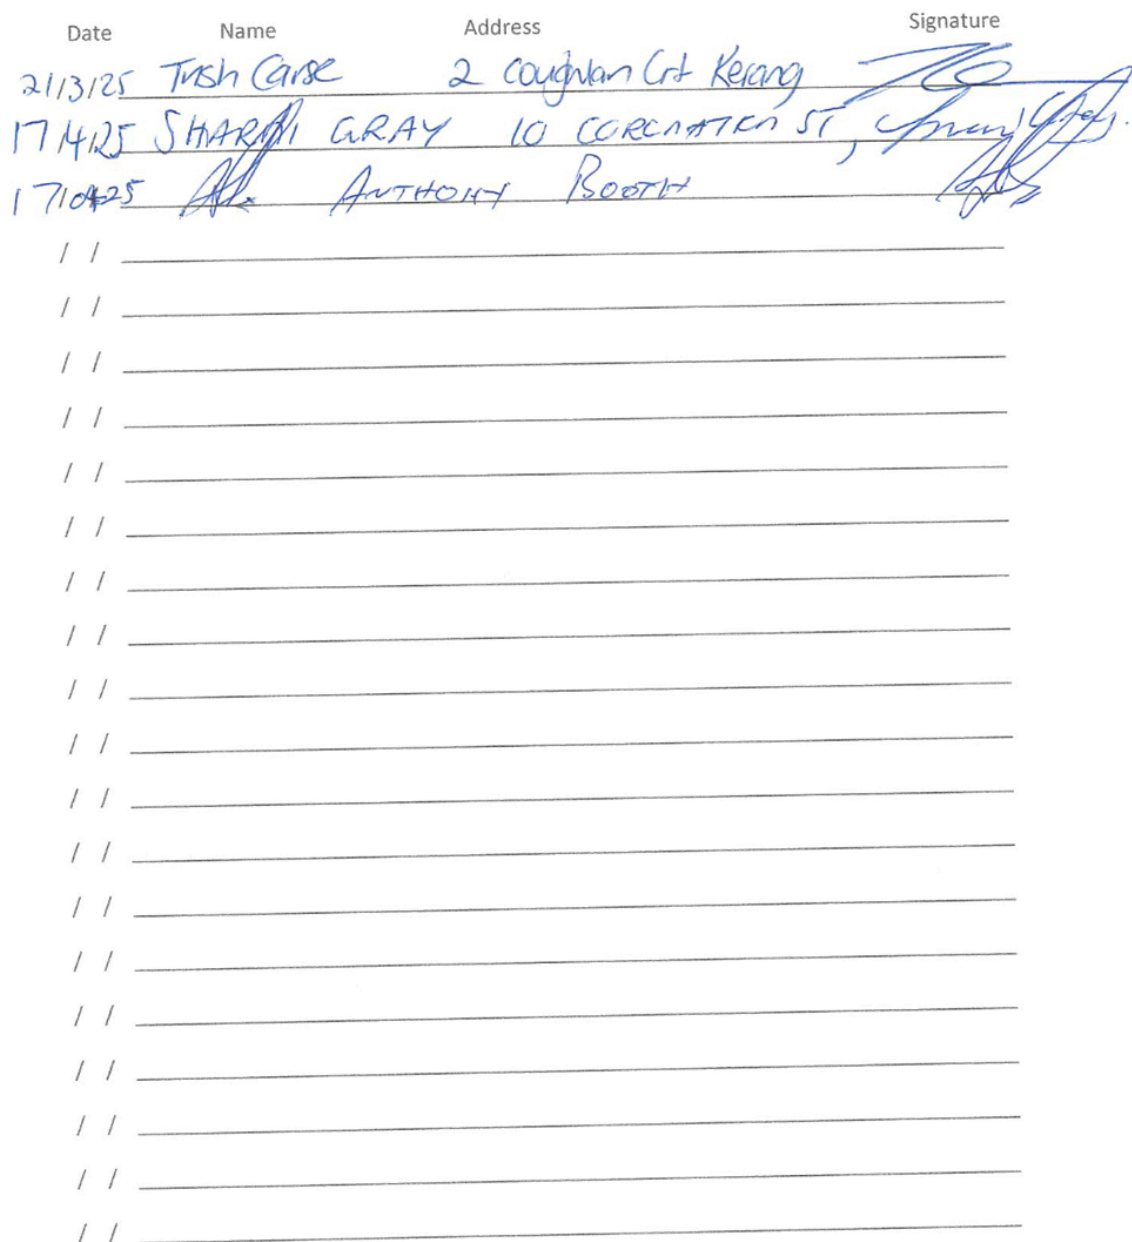 Date Name Address Signature
21/3/25 Trish Carse 2 Coughlan Crt Kerang
17/4/25 SHARNI GRAY 10 CORONATION ST,
17/04/25 ANTHONY BOOTH
/ /
/ /
/ /
/ /
/ /
/ /
/ /
/ /
/ /
/ /
/ /
/ /
/ /
/ /
/ /
/ /
/ /
/ /
/ /